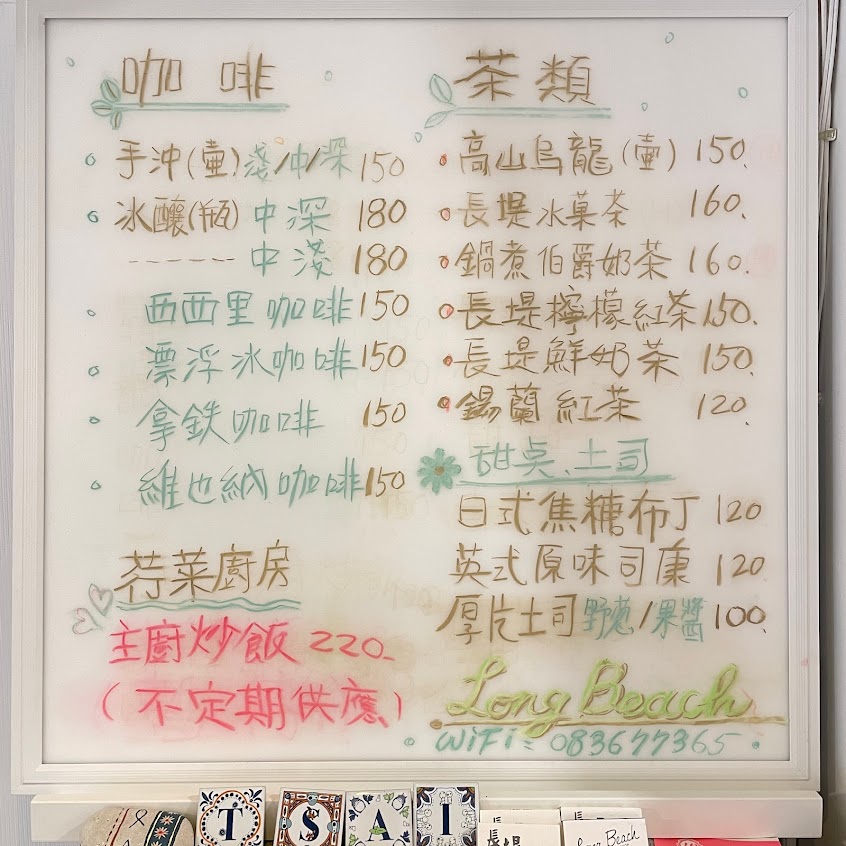 咖啡
手沖(壷)淺/中/深 150
冰釀(瓶)中深 180
------中淺 180
西西里咖啡 150
漂浮冰咖啡 150
拿鉄咖啡 150
維也納咖啡 150
荇菜廚房
主廚炒飯 220-
(不定期供應)
茶類
高山烏龍(壷) 150.
長堤水菓茶 160.
鍋煮伯爵奶茶 160.
長堤檸檬紅茶 150.
長堤鮮奶茶 150.
錫蘭紅茶 120.
甜桌、土司
日式焦糖布丁 120
英式原味司康 120
厚片土司 野蔥/果醬 100.
Long Beach
WiFi: 083677365
TSAI
長堤
Long Beach